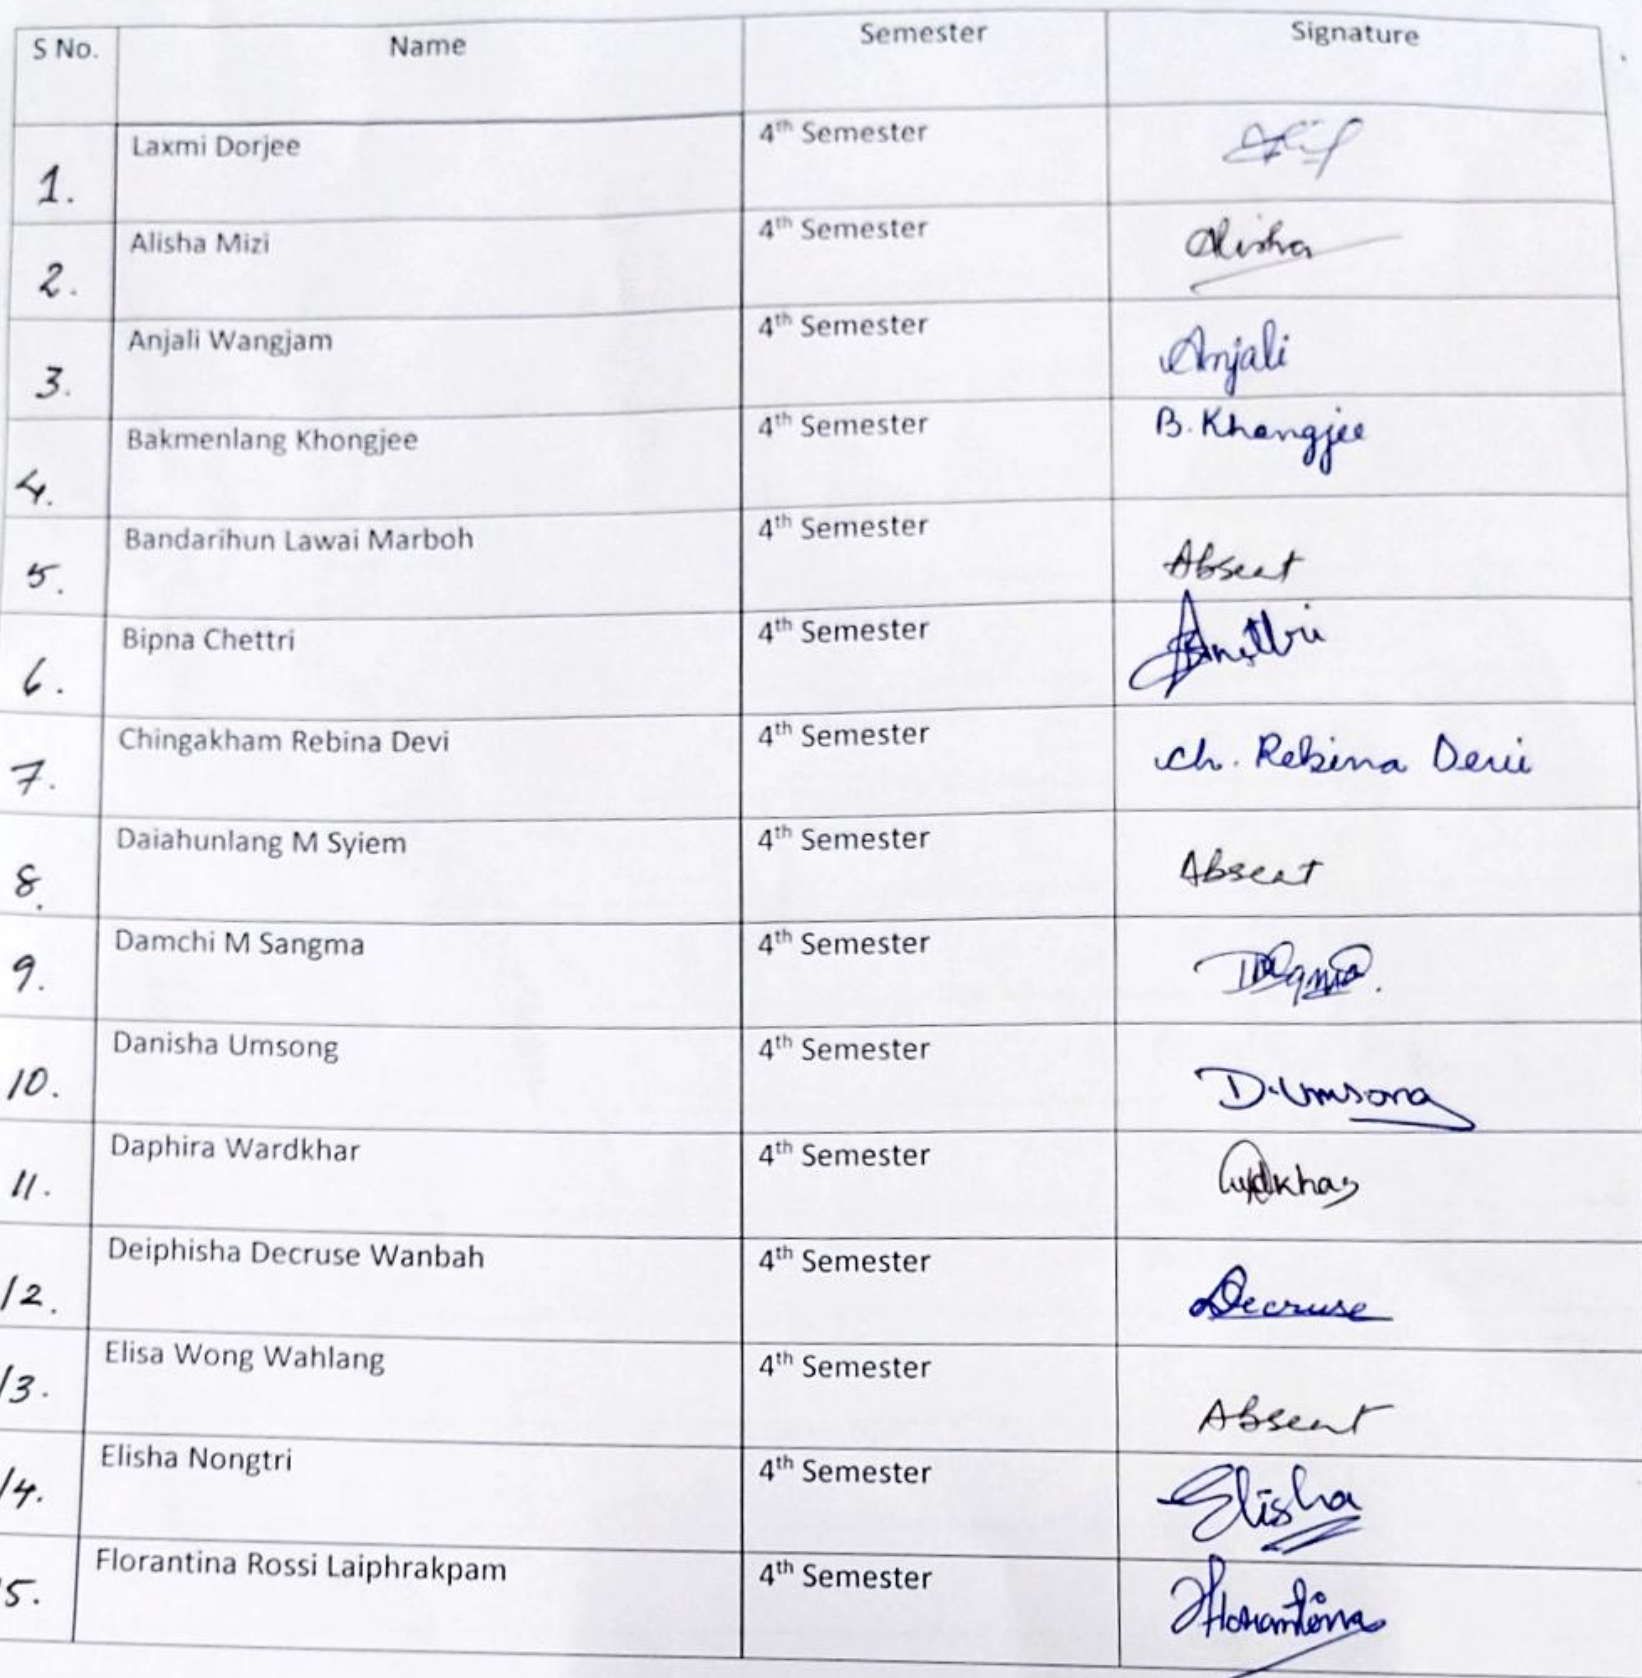 S No. Name Semester Signature
1. Laxmi Dorjee 4th Semester
2. Alisha Mizi 4th Semester Alisha
3. Anjali Wangjam 4th Semester Anjali
4. Bakmenlang Khongjee 4th Semester B. Khongjee
5. Bandarihun Lawai Marboh 4th Semester Absent
6. Bipna Chettri 4th Semester
7. Chingakham Rebina Devi 4th Semester Ch. Rebina Devi
8. Daiahunlang M Syiem 4th Semester Absent
9. Damchi M Sangma 4th Semester
10. Danisha Umsong 4th Semester D. Umsong
11. Daphira Wardkhar 4th Semester
12. Deiphisha Decruse Wanbah 4th Semester Decruse
13. Elisa Wong Wahlang 4th Semester Absent
14. Elisha Nongtri 4th Semester Elisha
5. Florantina Rossi Laiphrakpam 4th Semester Florantina